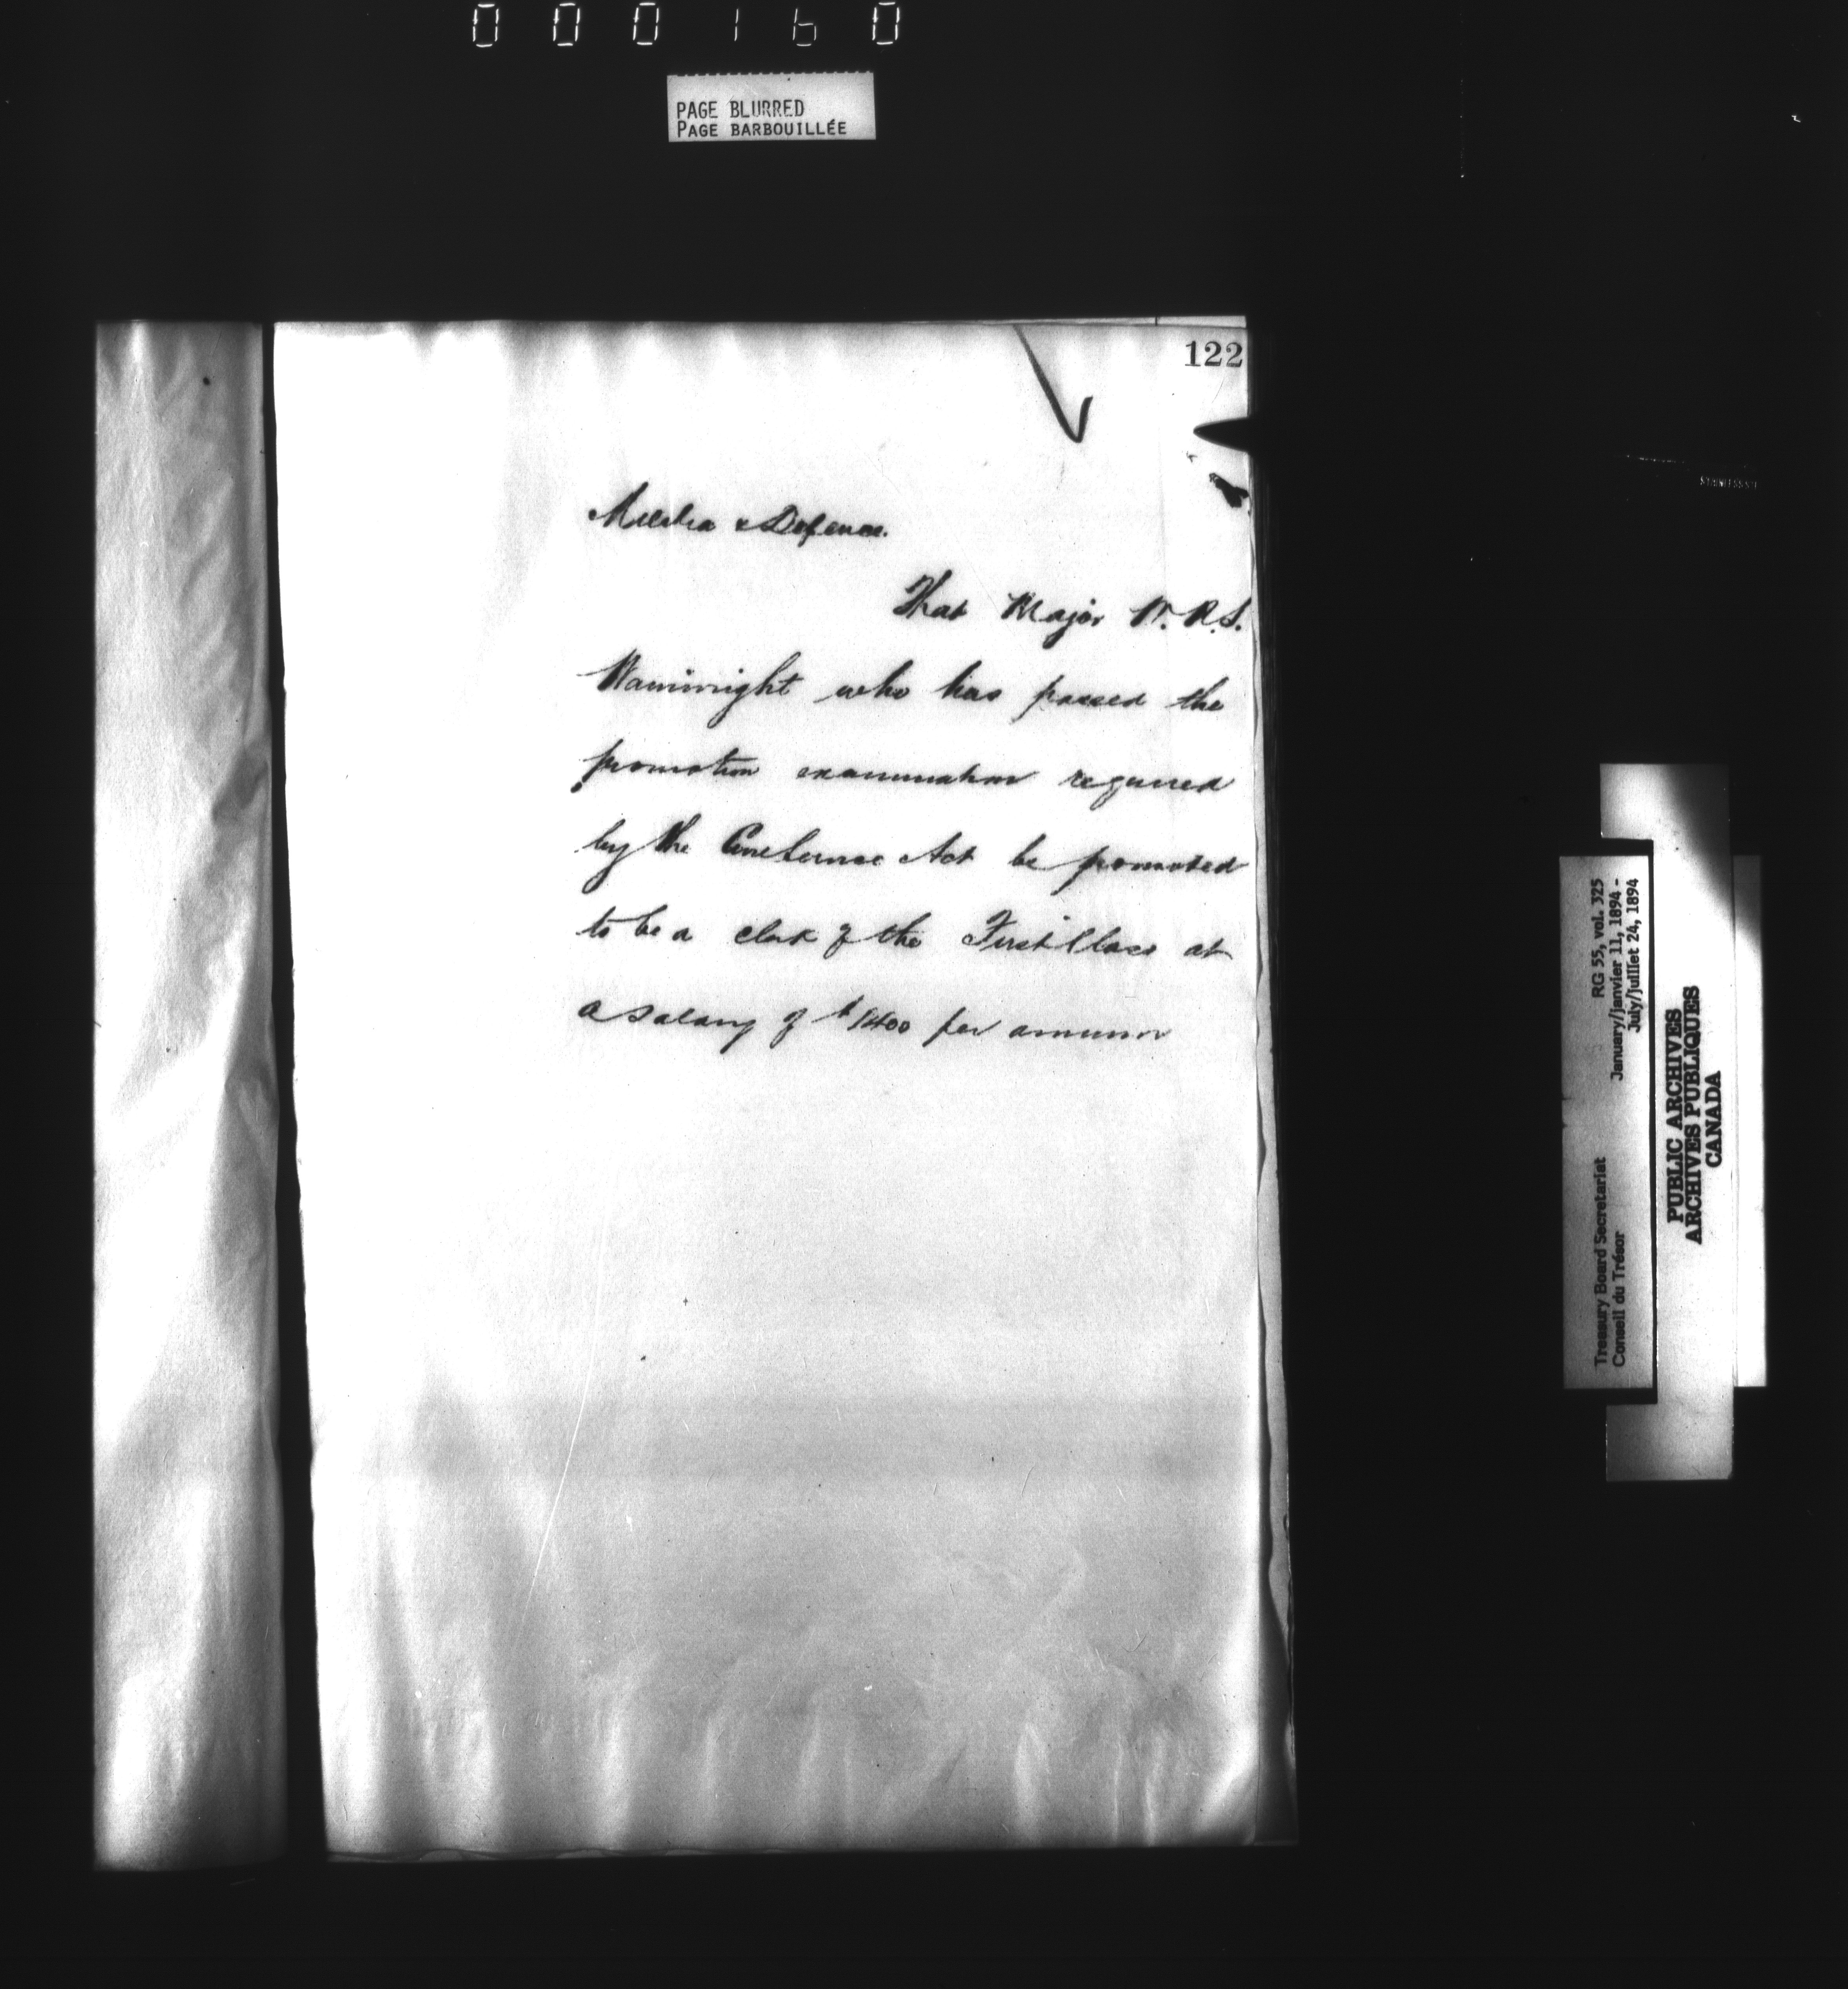 000160
PAGE BLURRED
PAGE BARBOUILLÉE
122
Militia & Defence.
That Major W. R. S.
Wainwright who has passed the
promotion examination required
by the Civil Service Act be promoted
to be a clerk of the First Class at
a salary of $1400 per annum
Treasury Board Secretariat RG 55, vol. 325
Conseil du Trésor January/janvier 11, 1894 -
July/juillet 24, 1894
PUBLIC ARCHIVES
ARCHIVES PUBLIQUES
CANADA